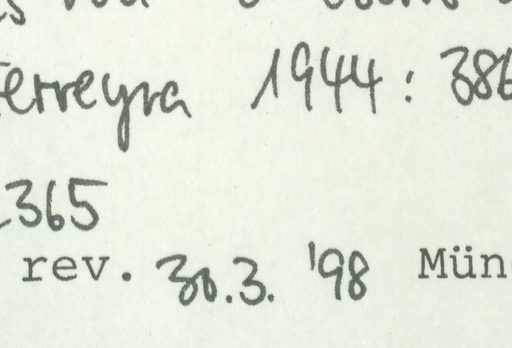 Ferreyra 1944: 386
365
rev. 30.3. '98 Mün